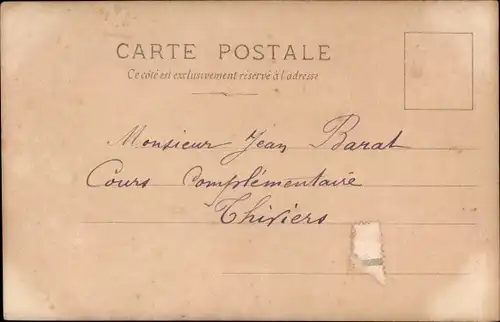 CARTE POSTALE
Ce côté est exclusivement réservé à l'adresse
Monsieur Jean Barat
Cours Complémentaire
Thiviers